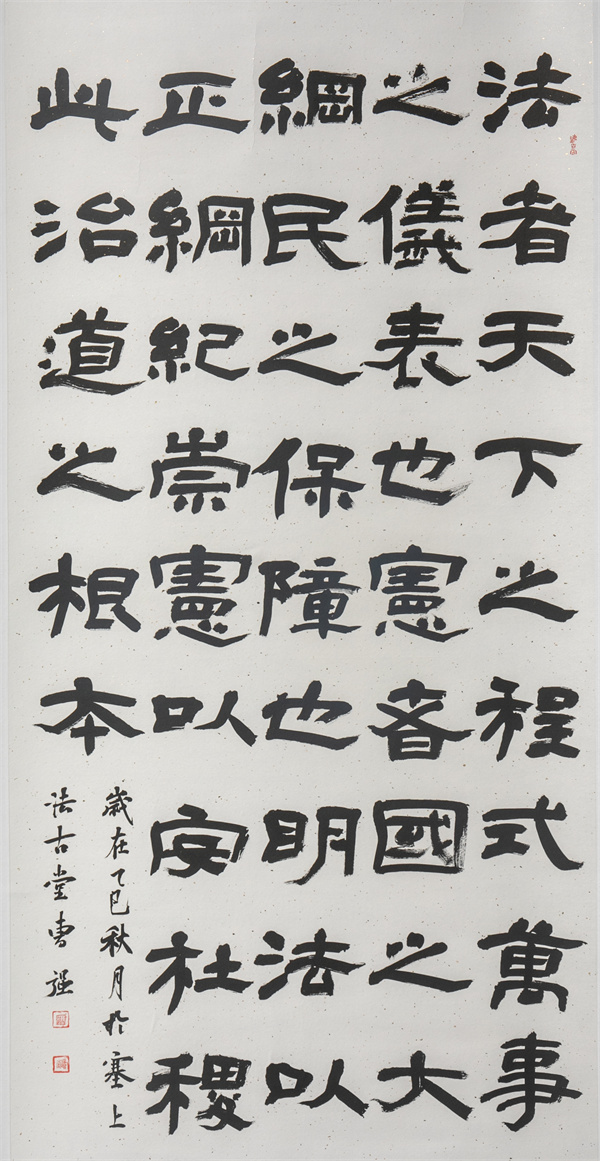 法者天下之程式萬事
之儀表也憲者國之大
綱民之保障也明法以
正綱紀崇憲以安社稷
此治道之根本
歲在乙巳秋月於塞上
法古堂曹强